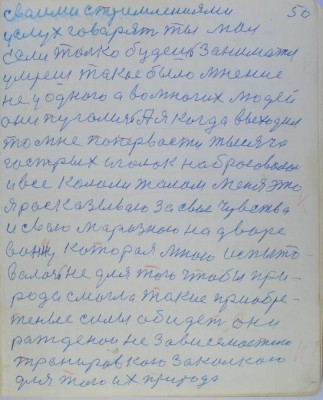 своими стремлениями 50
услух говорят ты мол
если только будеш заниматя
умреш такое было мнение
не у одного а во многих людей
они пугалися А я когда выходил
то мне попервасти тысяча
гострых иголок набросовалос
и все кололи жалом меня это
я росказываю за свое чувства
и свою марозною на дворе
ванну которая мною испыто-
валась не для того чтобы при-
рода смогла такие приобре-
теные силы обидет они
рождёной не зависемостию
транировкою закалкою
для того их природа